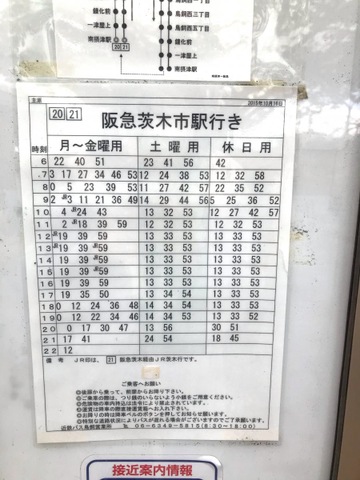 鐘化前
一津屋上
南摂津駅 20 21
鳥飼西三丁目
鳥飼西五丁目
鐘化前
一津屋上
南摂津駅
2015年10月18日
20 21 阪急茨木市駅行き
時刻 月～金曜用 土曜用 休日用
6 22 40 51 23 41 56 42
7 3 17 27 34 46 53 12 24 38 53 12 32 58
8 0 5 23 39 53 11 27 42 58 22 35 52
9 14 29 44 56 5 25 36 52
10 4 JR24 43 13 32 53 12 27 42 57
11 2 JR18 39 59 13 32 53 12 32 53
12 19 39 59 13 33 53 13 33 53
13 JR19 39 59 13 33 53 13 33 53
14 19 JR39 59 13 33 53 13 33 53
15 19 39 JR59 13 33 53 13 33 53
16 19 39 59 13 33 53 13 33 53
17 19 35 50 13 34 53 13 33 53
18 0 12 24 36 48 14 34 54 13 33 53
19 0 12 22 34 46 14 34 54 13 33 53
20 0 17 30 47 13 56 30 51
21 17 41 24 54 18 45
22 12
備考 JR印は、21 阪急茨木経由JR茨木行です。
ご乗客へお願い
近鉄バス鳥飼営業所 ℡06-6349-5815(8:30-18:00)
接近案内情報